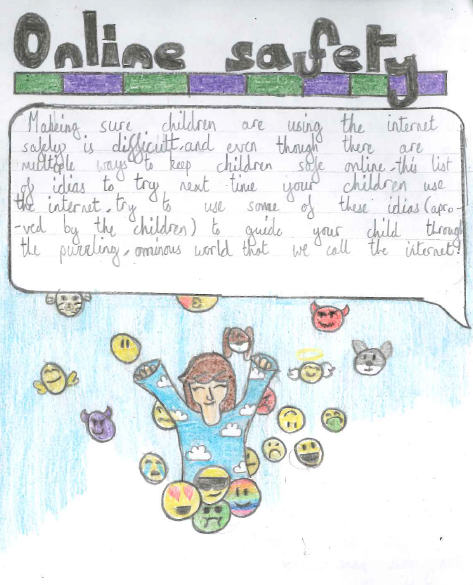 Online safety
Makeing sure children are using the internet
safeley is difficult and even though there are
multiple ways to keep children safe online, this list
of idias to try next time your children use
the internet, try to use some of these idias (apro-
-ved by the children) to guide your child through
the puzzling, ominous world that we call the internet!